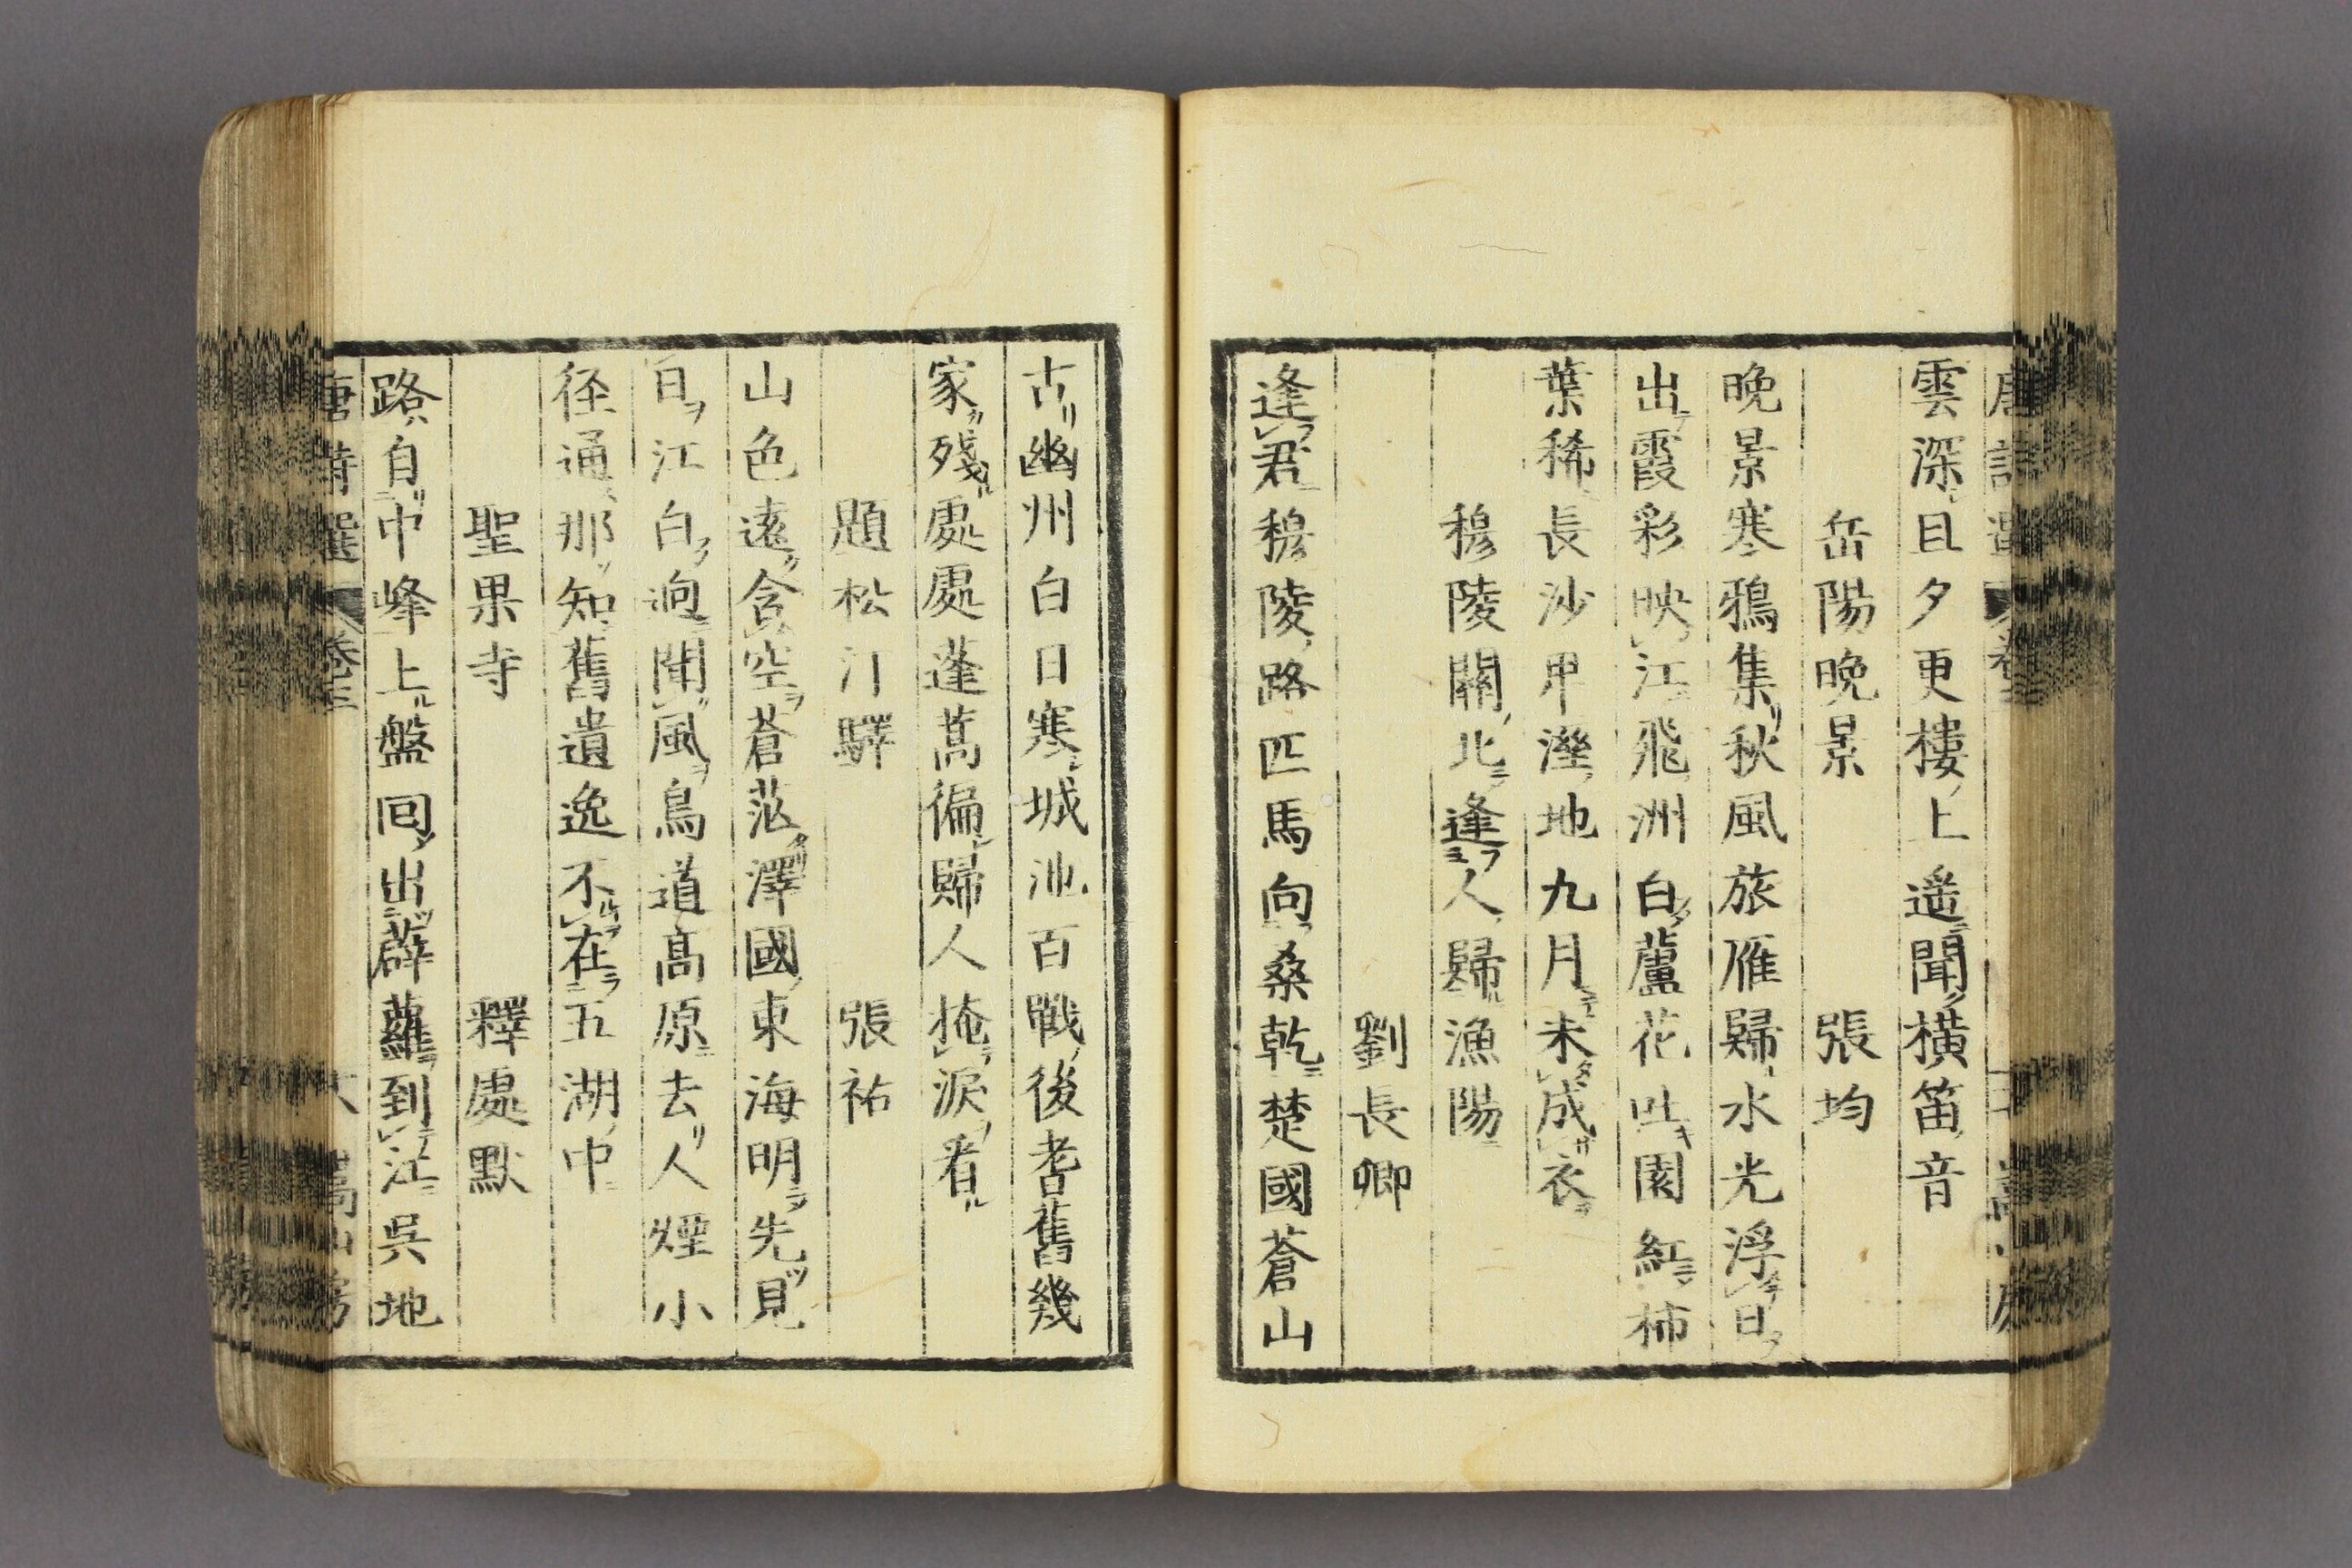 雲深且夕更樓上遥聞橫笛音
岳陽晩景　張均
晩景寒鴉集秋風旅雁歸水光浮日
出霞彩映江飛洲白蘆花吐園紅柿
葉稀長沙卑溼地九月未成衣
穆陵關北逢人歸漁陽
劉長卿
逢君穆陵路匹馬向桑乾楚國蒼山
古幽州白日寒城池百戰後耆舊幾
家殘處處蓬蒿徧歸人掩淚看
題松汀驛　張祐
山色遠含空蒼茫澤國東海明先見
日江白逈聞風鳥道高原去人煙小
径通那知舊遺逸不在五湖中
聖果寺　釋處默
路自中峰上盤回出薜蘿到江吳地
唐詩選　卷三